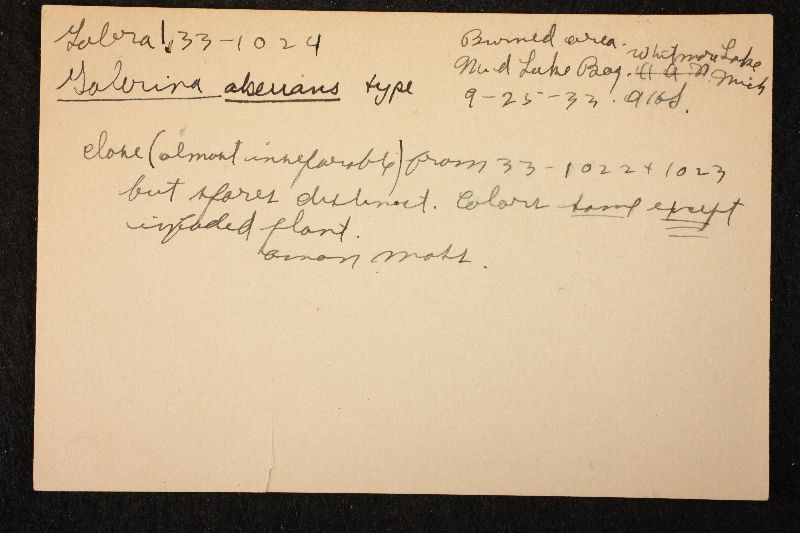 Galera! 33-1024
Galerina aberrans type
Burned area. Whitmore Lake
Mud Lake Bog. Mich
9-25-33. AHS.
close (almost inseparable) from 33-1022 + 1023
but spores distinct. Colors same except
in faded plant.
among moss.